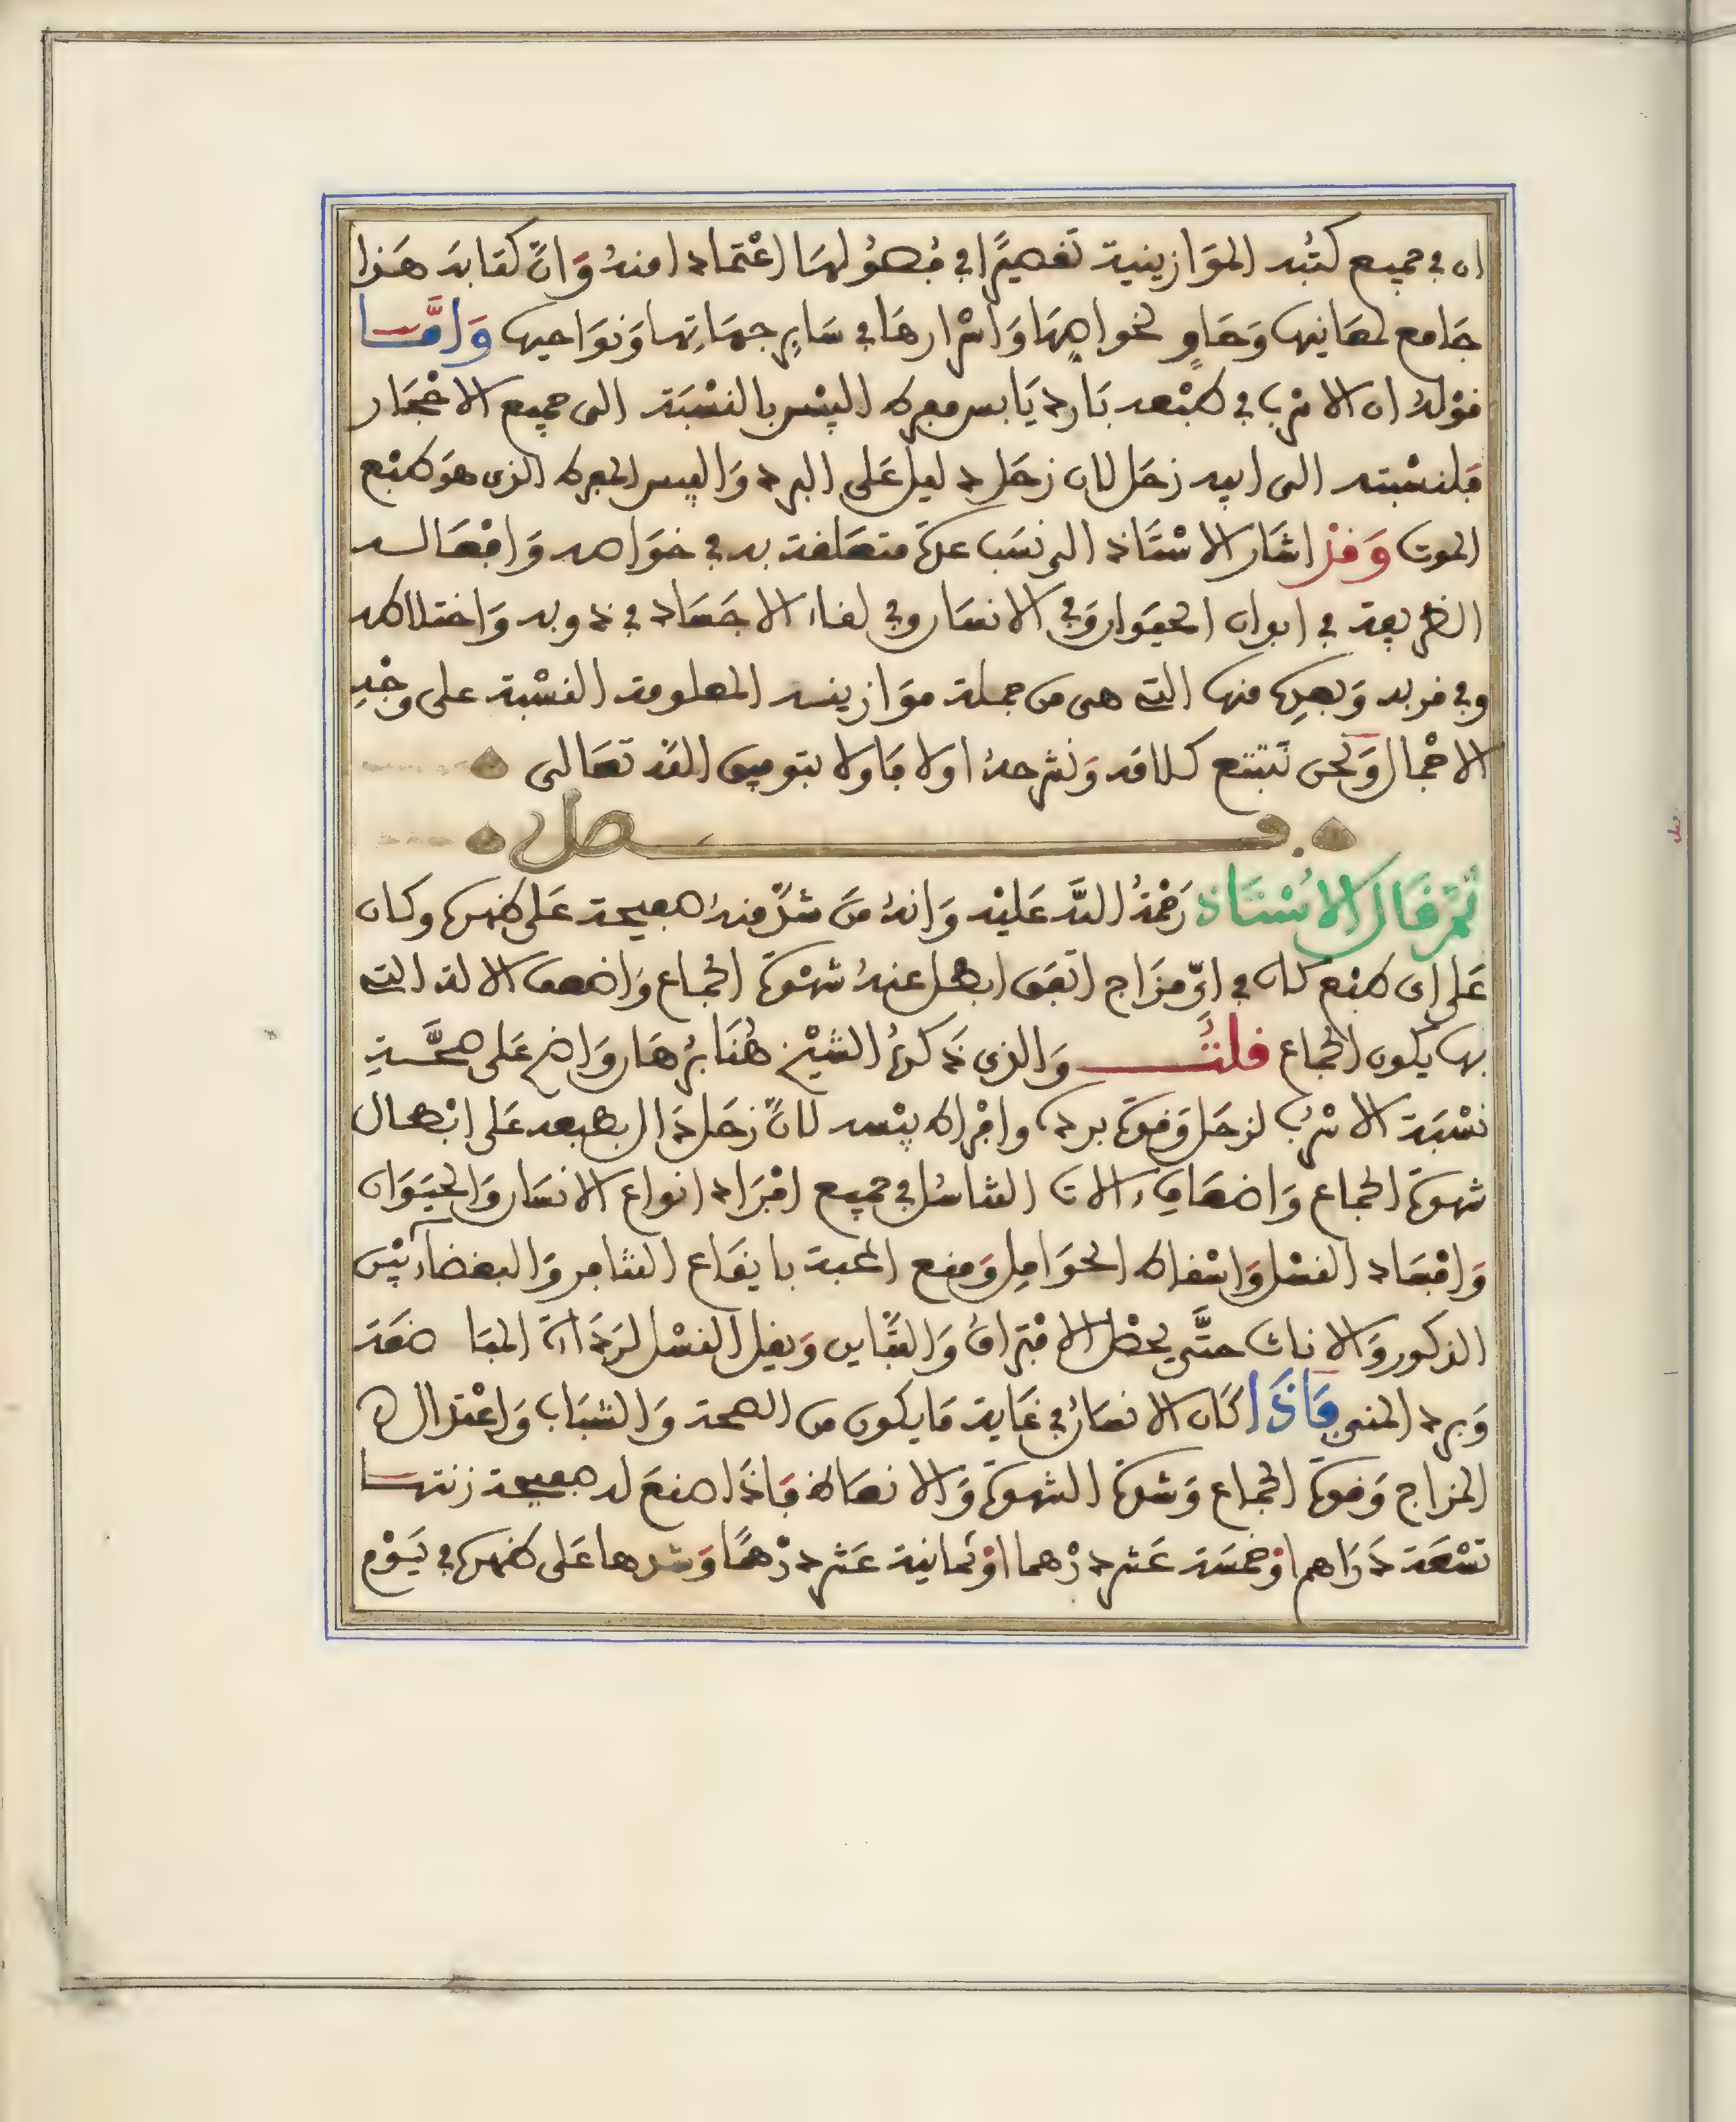 ان في جميع كتبه الموازينية تقصيرا في فصولها اعتمادا منه وَانّ كتابه هَذا
جَامع لمعَانيها وَحَاوٍ لخواصِهَا وَاسْرارهَا في سَايرِ جهَاتِها وَنوَاحيها وَامَّا
قوْلهُ ان الاسْرب في طبْعه بَارد يَابس مفرط اليبْس بالنسْبَة الى جميع الاحْجَار
فلنسْبته الى ابيه زحَل لان زحَل دليل عَلى البرد وَاليبس المفرط الذى هوَ طبْع
الموت وَقدْ اشَار الاسْتَاذ الى نسَب عدّة متعَلقة به في خوَاصه وَافعَالـــه
الطريفة في ابوان الحيَوان وَفي الانسَان وفي لقاء الاجسَاد في ذوبه وَاختلاطه
وفي قربه وَبعدِه منها التى هى من جملة موَازينــه المعلومة النسْبة على وجْهِ
الاجْمال وَنحن نَتبّع كلامه وَنشرحهُ اولا فَاولا بتوفيق الله تعَالى
فـــــــصل
ثمّ قَال الاسْتَاذ رَحْمَةُ اللَّه عَليْه وَانهُ مَن شدّ منهُ صفيحة عَلى ظهره وكان
عَلى اى طبْع كان في اىّ مزَاج اتفَق ابطل عنهُ شهْوَة الجماع وَاضعف الالة التى
بها يكون الجماع قلتُ وَالذى ذَكرهُ الشيْخ هُنَا برْهَان وَاضح عَلى صحَّـةِ
نسْبَة الاسْرُب لزحَل وَقوّة برده وافرَاط يبْسه لانّ زحَل دَال بطبعه عَلى ابْطال
شهوة الجماع وَاضعَافِ ءالات التناسُل في جميع افرَاد انواع الانسَان وَالحيَوَان
وَافسَاد النسْل وَاسْقاط الحوَامِل وَمنع المحبة بايقَاع التنافر وَالبغضآء بيْن
الذكور وَالاناث حتَّى يحصْل الافْترَاقُ وَالتّبَاين وَيقل النسْل لرَدَاءة المبَا ضعَة
وَبرد المنى فَاذَا كَان الانسَانُ في غَاية مَا يكون من الصحة وَالشبَاب وَاعْتدَال
المزاج وَقوّة الجماع وَشدّة الشهوة وَالانعَاظ فَاذَا صنعَ له صفيحة زنتهـا
تسْعَة دَرَاهم اوْ خمسَة عَشر دِرْهما اوْ ثمانية عَشر دِرْهمًا وَشدها عَلى ظهره في يَوْم